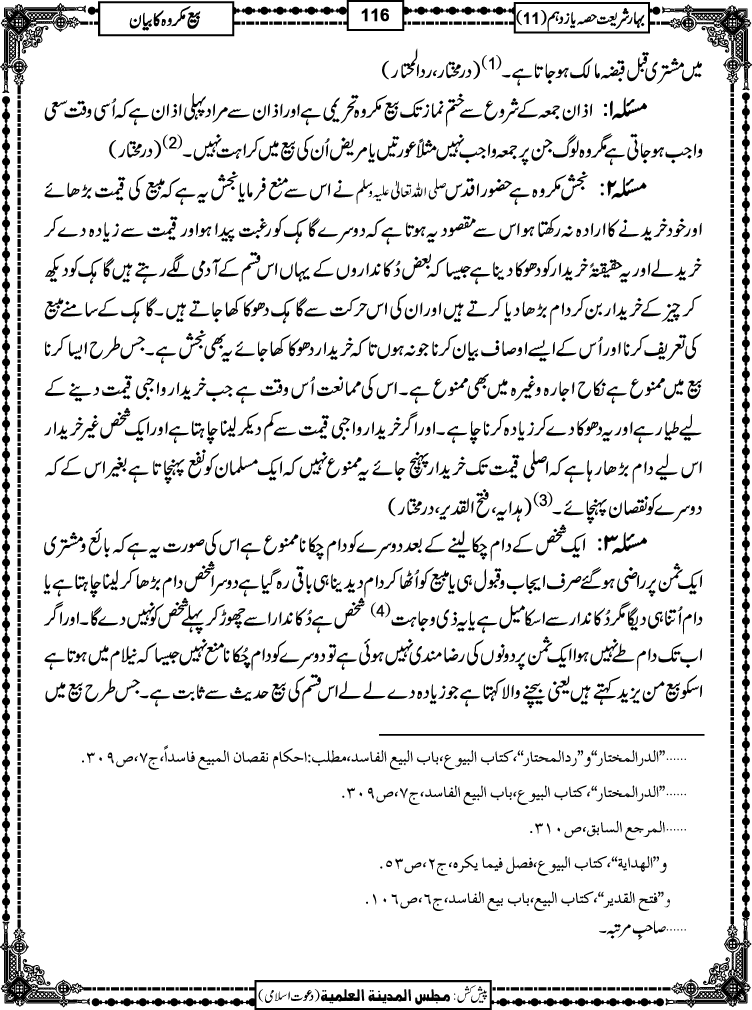 بہار شریعت حصہ یازدہم (11)
116
بیع مکروہ کا بیان
میں مشتری قبل قبضہ مالک ہوجاتا ہے۔(1) (درمختار، ردالمحتار)
مسئلہ ۱: اذان جمعہ کے شروع سے ختم نماز تک بیع مکروہ تحریمی ہے اور اذان سے مراد پہلی اذان ہے کہ اُسی وقت سعی
واجب ہوجاتی ہے مگر وہ لوگ جن پر جمعہ واجب نہیں مثلاً عورتیں یا مریض اُن کی بیع میں کراہت نہیں۔(2) (درمختار)
مسئلہ ۲: نجش مکروہ ہے حضور اقدس صلی اللہ تعالیٰ علیہ وسلم نے اس سے منع فرمایا نجش یہ ہے کہ مبیع کی قیمت بڑھائے
اور خود خریدنے کا ارادہ نہ رکھتا ہو اس سے مقصود یہ ہوتا ہے کہ دوسرے گاہک کو رغبت پیدا ہو اور قیمت سے زیادہ دے کر
خرید لے اور یہ حقیقۃً خریدار کو دھوکا دینا ہے جیسا کہ بعض دُکانداروں کے یہاں اس قسم کے آدمی لگے رہتے ہیں گاہک کو دیکھ
کر چیز کے خریدار بن کر دام بڑھا دیا کرتے ہیں اور ان کی اس حرکت سے گاہک دھوکا کھا جاتے ہیں۔ گاہک کے سامنے مبیع
کی تعریف کرنا اور اُس کے ایسے اوصاف بیان کرنا جو نہ ہوں تاکہ خریدار دھوکا کھا جائے یہ بھی نجش ہے۔ جس طرح ایسا کرنا
بیع میں ممنوع ہے نکاح اجارہ وغیرہ میں بھی ممنوع ہے۔ اس کی ممانعت اُس وقت ہے جب خریدار واجبی قیمت دینے کے
لیے طیار ہے اور یہ دھوکا دے کر زیادہ کرنا چاہے۔ اور اگر خریدار واجبی قیمت سے کم دیکر لینا چاہتا ہے اور ایک شخص غیر خریدار
اس لیے دام بڑھا رہا ہے کہ اصلی قیمت تک خریدار پہنچ جائے یہ ممنوع نہیں کہ ایک مسلمان کو نفع پہنچاتا ہے بغیر اس کے کہ
دوسرے کو نقصان پہنچائے۔(3) (ہدایہ، فتح القدیر، درمختار)
مسئلہ ۳: ایک شخص کے دام چکا لینے کے بعد دوسرے کو دام چکانا ممنوع ہے اس کی صورت یہ ہے کہ بائع و مشتری
ایک ثمن پر راضی ہو گئے صرف ایجاب و قبول ہی یا مبیع کو اُٹھا کر دام دیدینا ہی باقی رہ گیا ہے دوسرا شخص دام بڑھا کر لینا چاہتا ہے یا
دام اُتنا ہی دیگا مگر دُکاندار سے اسکا میل ہے یا یہ ذی وجاہت(4) شخص ہے دُکاندار اسے چھوڑ کر پہلے شخص کو نہیں دے گا۔ اور اگر
اب تک دام طے نہیں ہوا ایک ثمن پر دونوں کی رضامندی نہیں ہوئی ہے تو دوسرے کو دام چُکانا منع نہیں جیسا کہ نیلام میں ہوتا ہے
اسکو بیع من یزید کہتے ہیں یعنی بیچنے والا کہتا ہے جو زیادہ دے لے لے اس قسم کی بیع حدیث سے ثابت ہے۔ جس طرح بیع میں
......”الدرالمختار“ و ”ردالمحتار“، کتاب البیوع، باب البیع الفاسد، مطلب: احکام نقصان المبیع فاسداً، ج۷، ص۳۰۹.
......”الدرالمختار“، کتاب البیوع، باب البیع الفاسد، ج۷، ص۳۰۹.
......المرجع السابق، ص۳۱۰.
و”الھدایة“، کتاب البیوع، فصل فیما یکرہ، ج۲، ص۵۳.
و”فتح القدیر“، کتاب البیع، باب بیع الفاسد، ج۶، ص۱۰۶.
......صاحبِ مرتبہ۔
پیش کش: مجلس المدینة العلمیة (دعوت اسلامی)